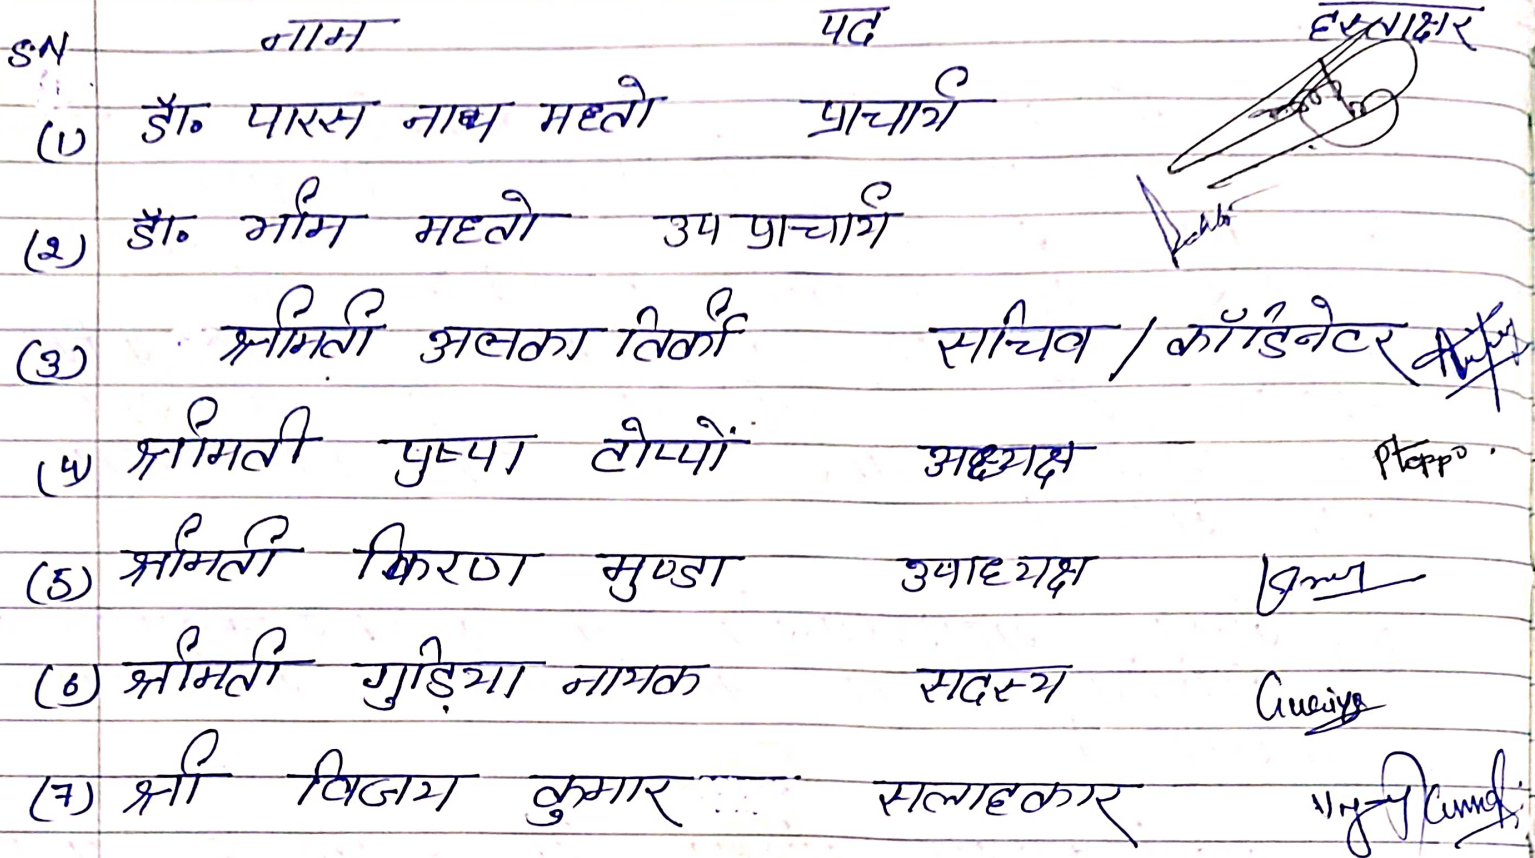 S.N नाम पद हस्ताक्षर
(1) डॉ॰ पारस नाथ महतो प्राचार्य
(2) डॉ॰ भीम महतो उप प्राचार्य
(3) श्रीमती अलका तिर्की सचिव / कॉर्डिनेटर
(4) श्रीमती पुष्पा टोप्पों अध्यक्ष PToppo.
(5) श्रीमती किरण मुण्डा उपाध्यक्ष
(6) श्रीमती गुड़िया नायक सदस्य
(7) श्री विजय कुमार सलाहकार